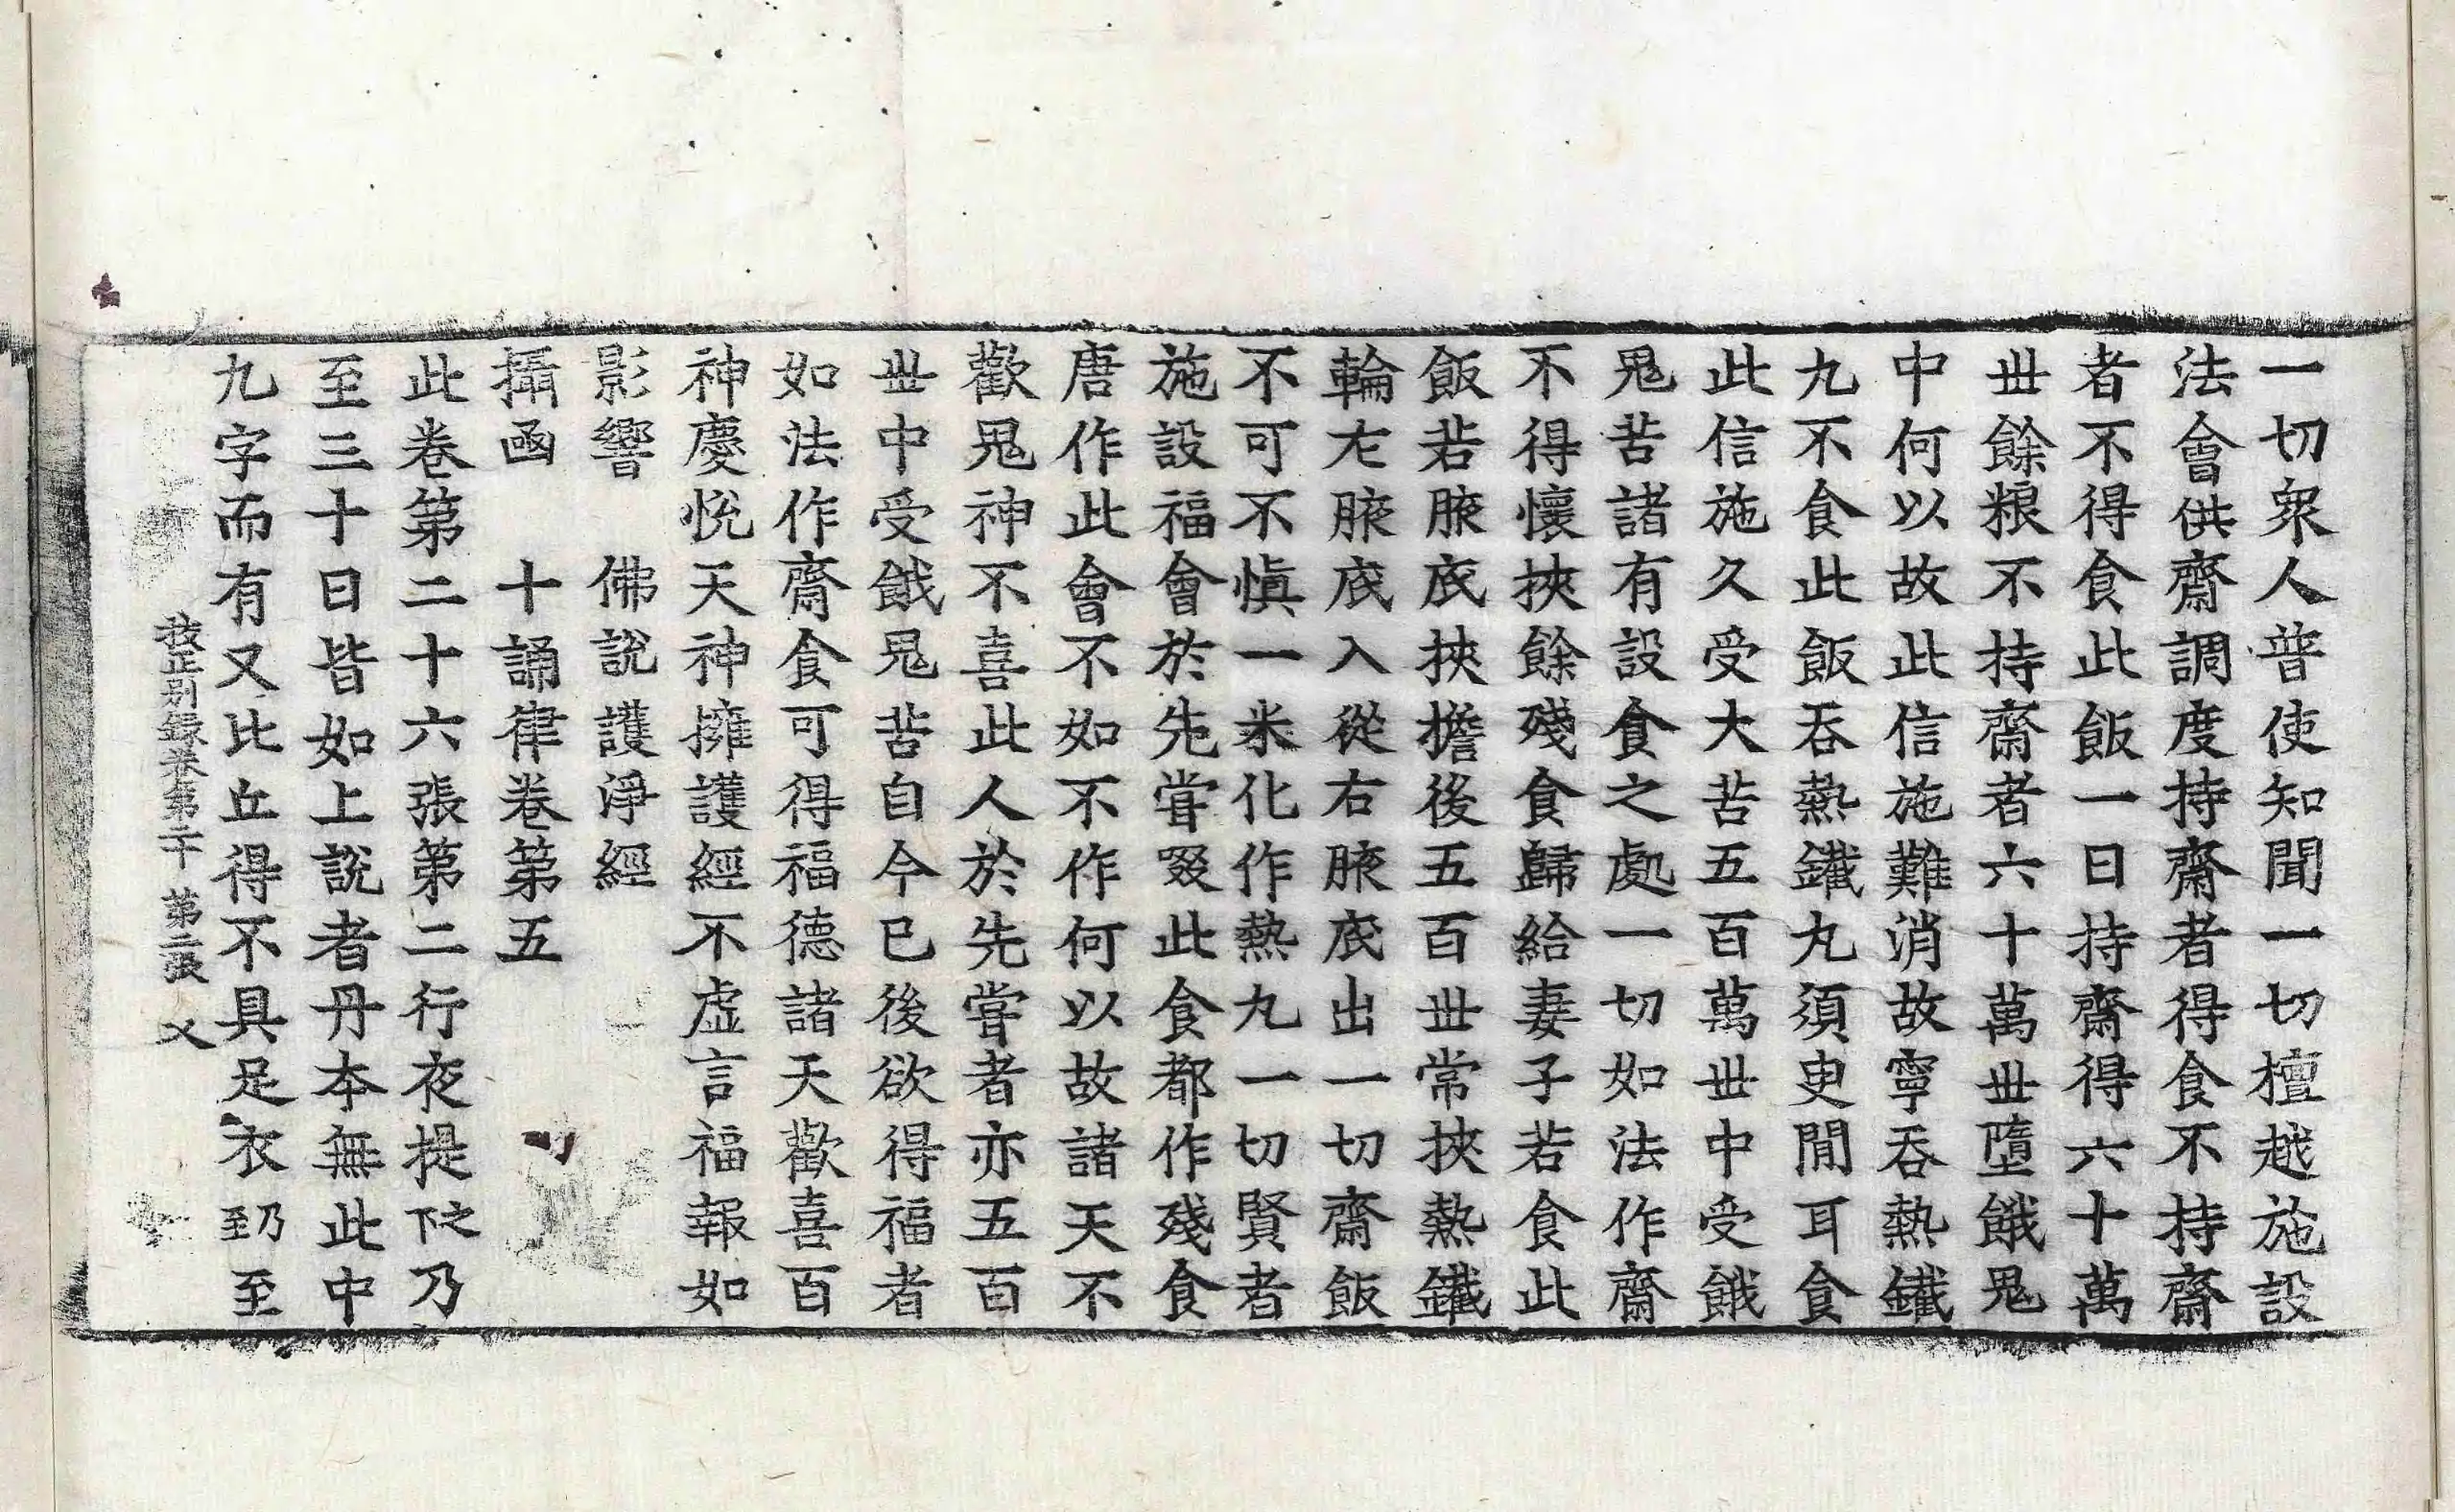 一切衆人普使知聞一切檀越施設
法會供齋調度持齋者得食不持齋
者不得食此飯一日持齋得六十萬
丗餘粮不持齋者六十萬丗墮餓鬼
中何以故此信施難消故寧吞熱鐵
九不食此飯吞熱鐵丸須臾閒耳食
此信施久受大苦五百萬丗中受餓
鬼苦諸有設食之處一切如法作齋
不得懷挾餘殘食歸給妻子若食此
飯若腋底挾擔後五百丗常挾熱鐵
輪左腋底入從右腋底出一切齋飯
不可不慎一米化作熱丸一切賢者
施設福會於先甞啜此食都作殘食
唐作此會不如不作何以故諸天不
歡鬼神不喜此人於先嘗者亦五百
丗中受餓鬼苦自今已後欲得福者
如法作齋食可得福德諸天歡喜百
神慶悅天神擁護經不虛言福報如
影響　佛說護淨經
攝函　十誦律卷第五
此卷第二十六張第二行夜提下之乃
至三十日皆如上說者丹本無此中
九字而有又比丘得不具足衣乃至至
校正別錄卷第二十　第二張　乂